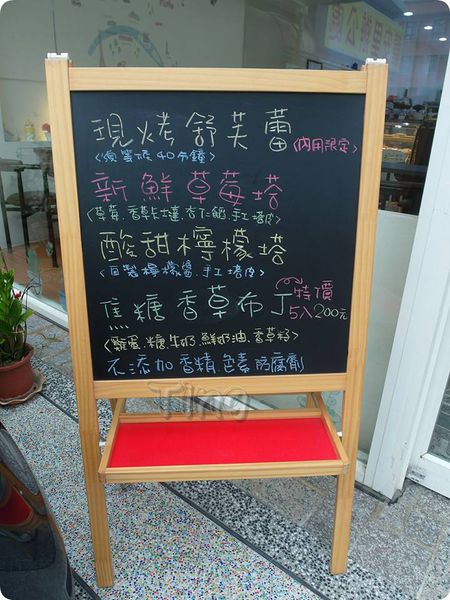 現烤舒芙蕾<內用限定>
<需等候40分鐘>
新鮮草莓塔
<草莓.香草卡士達.杏仁餡.手工塔皮>
酸甜檸檬塔
<自製檸檬醬.手工塔皮>
焦糖香草布丁 特價5入200元
<雞蛋.糖.牛奶.鮮奶油.香草籽>
不添加香精.色素.防腐劑
Ting